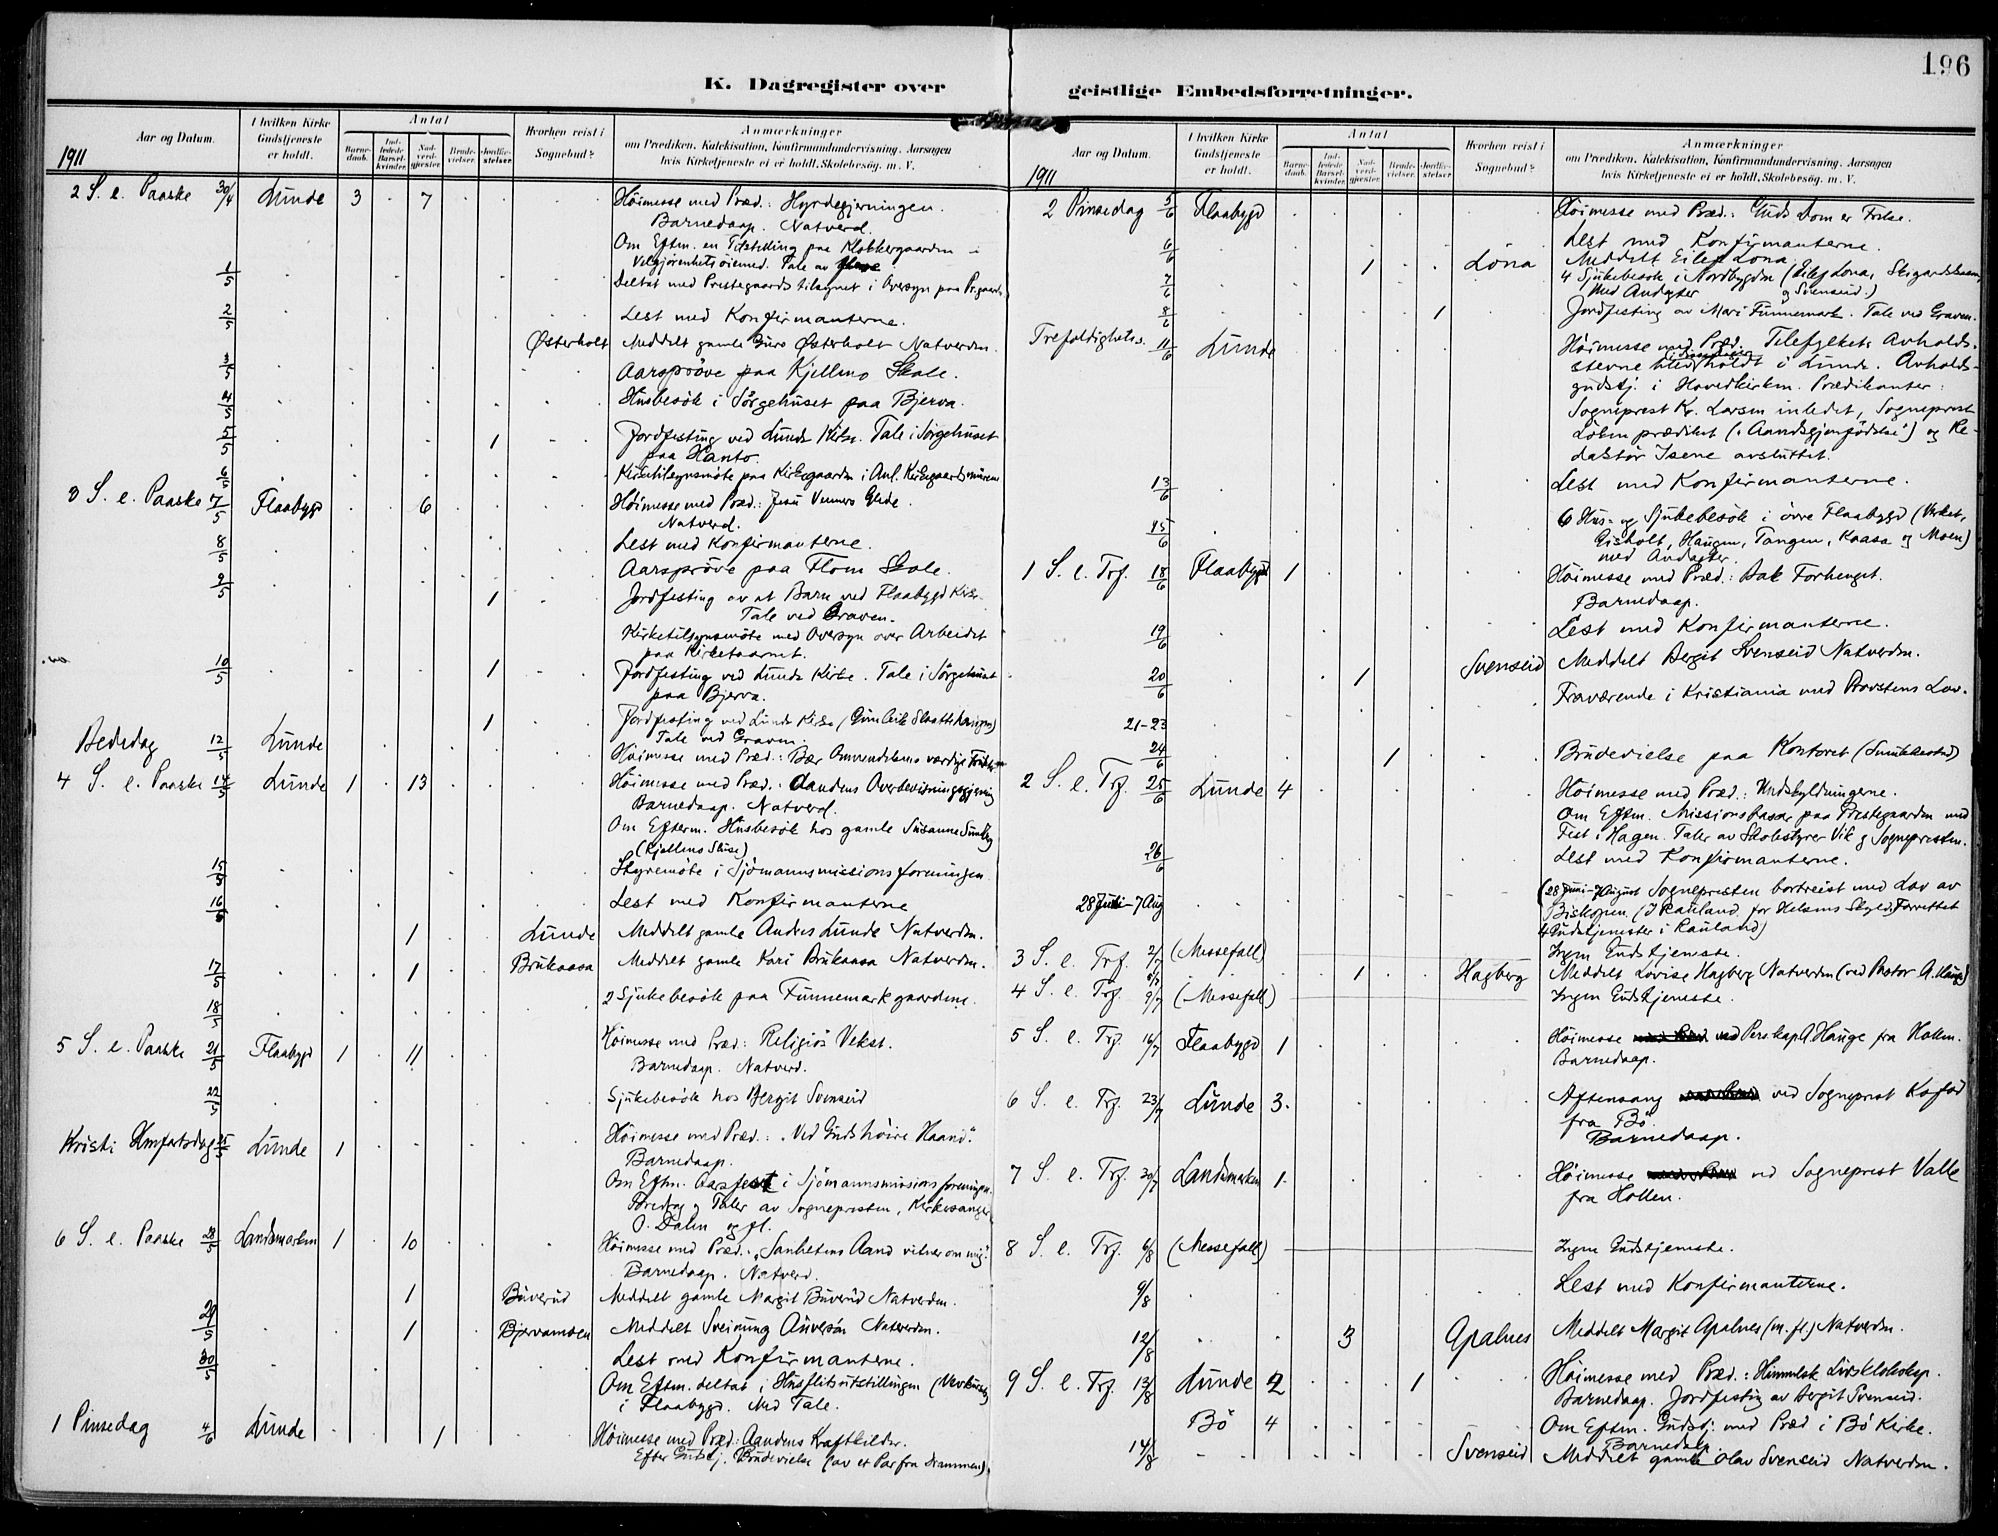 196
K. Dagregister over
geistlige Embedsforretninger.
1911
Aar og Datum.
I hvilken Kirke Gudstjeneste er holdt.
Antal
Barnedaab.
Indledede Barselkvinder.
Nadverdgjester.
Brudevielser.
Jordfæstelser
Hvorhen reist i Sognebud?
Anmærkninger
om Prædiken, Katekisation, Konfirmandundervisning, Aarsagen
hvis Kirketjeneste ei er holdt, Skolebesøg, m. V.
2 S. e. Paaske 30/4 Lunde 3 7 Høimesse med Præd.: Hyrdegjerningen.
Barnedaap. Natverd.
Om Eftm. en Tilstelling paa Klokkergaarden i
Velgjørenhetsøiemed. Tale av
1/5 Deltat med Prestegaardstilsynet i Oversyn paa Pr.gaarden
2/5 Lest med Konfirmanterne.
Østerholt Meddelt gamle Guro Østerholt Natverden.
3/5 Aarsprøve paa Kjellmo Skole.
4/5 Husbesøk i Sørgehuset paa Bjerva.
5/5 1 Jordfesting ved Lunde Kirke. Tale i Sørgehuset
paa Hanto.
6/5 Kirketilsynsmøte paa Kirkegaarden i Anl. Kirkegaardsmuren
3 S. e. Paaske 7/5 Flaabygd 6 Høimesse med Præd.: Jesu Venners Glæde.
Natverd.
8/5 Lest med Konfirmanterne.
9/5 Aarsprøve paa Flom Skole.
1 Jordfesting av et Barn ved Flaabygd Kirke
Tale ved Graven.
Kirketilsynsmøte med Oversyn over Arbeidet
paa Kirketaarnet.
10/5 1 Jordfesting ved Lunde Kirke. Tale i Sørgehuset
paa Bjerva.
1 Jordfesting ved Lunde Kirke (Gunleik Slaattekaasen)
Tale ved Graven.
Bededag 12/5 Lunde Høimesse med Præd.: Bær Omvendelsens værdige Frukter
4 S. e. Paaske 14/5 Lunde 1 13 Høimesse med Præd.: Aandens Overbevisningsgjerning
Barnedaap. Natverd.
Om Efterm. Husbesøk hos gamle Susanne
(Kjeldens Sluse)
15/5 Styremøte i Sjømannsmissionsforeningen
16/5 Lest med Konfirmanterne
1 Lunde Meddelt gamle Anders Lunde Natverden.
17/5 1 Brukaasa Meddelt gamle Kari Brukaasa Natverden.
18/5 2 Sjukebesøk paa Funnemarkgaardene.
5 S. e. Paaske 21/5 Flaabygd 1 11 Høimesse med Præd.: Religiøs Vekst.
Barnedaap. Natverd.
22/5 Sjukebesøk hos Bergit Svenseid
Kristi Himfartsdag 25/5 Lunde 1 Høimesse med Præd.: "Ved Guds høire Haand".
Barnedaap.
Om Eftm. Aarsfest i Sjømannsmissionsforeningen.
Foredrag og Taler av Sognepresten, Kirkesanger
O. Dalen og fl.
6 S. e. Paaske 28/5 Landsmarken 1 10 Høimesse med Præd.: "Sanhetens Aand vitner om mig".
Barnedaap. Natverd.
1 Buverud Meddelt gamle Margit Buverud Natverden.
29/5 1 Bjervamoen Meddelt Sveinung Natverden.
30/5 Lest med Konfirmanterne.
Om Eftm. deltat i Husflitsutstillingen
i Flaabygd. Med Tale.
1 Pinsedag 4/6 Lunde 1 Høimesse med Præd.: Aandens Kraftkilder.
Efter Gudstj. Brudevielse (av et Par fra Drammen)
1911
Aar og Datum.
I hvilken Kirke Gudstjeneste er holdt.
Antal
Barnedaab.
Indledede Barselkvinder.
Nadverdgjester.
Brudevielser.
Jordfæstelser
Hvorhen reist i Sognebud?
Anmærkninger
om Prædiken, Katekisation, Konfirmandundervisning, Aarsagen
hvis Kirketjeneste ei er holdt, Skolebesøg, m. V.
2 Pinsedag 5/6 Flaabygd Høimesse med Præd.: Guds Dom er Frelse.
6/6 Lest med Konfirmanterne.
1 Løna Meddelt Eilef Løna
7/6 4 Sjukebesøk i Nordbygden (Eilef Løna,
Med Andagter og Svenseid.)
8/6 1 Jordfesting av Mari Funnemark. Tale ved Graven.
Trefoldighetss. 11/6 Lunde Høimesse med Præd. Telefylkets Avholds-
stevne blev holdt i Lunde. Avholds-
gudstj. i Hovedkirken. Prædikanter:
Sogneprest Kr. Larsen inledet, Sogneprest
prædiket ("Aandsgjenfødelse") og Re-
daktør Isene avsluttet.
13/6 Lest med Konfirmanterne.
15/6 6 Hus- og Sjukebesøk i øvre Flaabygd (Verket,
Eisholt, Haugen, Tangen, Kaasa og Moen)
med Andagter.
1 S. e. Tref. 18/6 Flaabygd 1 Høimesse med Præd.: Bak Forhenget.
Barnedaap.
19/6 Lest med Konfirmanterne.
20/6 1 Svenseid Meddelt Bergit Svenseid Natverden.
21-23 Fraværende i Kristiania med Provstens Lov.
24/6 1 Brudevielse paa Kontoret
2 S. e. Trf. 25/6 Lunde 4 Høimesse med Præd.: Undskyldningerne.
Om Eftm. Missionsbasar paa Prestegaarden med
Fest i Hagen. Taler av Skolestyrer Vik og Sognepresten.
26/6 Lest med Konfirmanterne.
28 Juni-7 Aug (28 Juni-7 August Sognepresten bortreist med Lov av
Biskopen (I Rauland for Helsens Skyld. Forrettet
4 Gudstjenester i Rauland)
3 S. e. Trf. 2/7 (Messefall) Ingen Gudstjeneste.
1 Hagberg Meddelt Lovise Hagberg Natverden (ved Pastor A. Hauge)
4 S. e. Trf. 9/7 (Messefall) Ingen Gudstjeneste.
5 S. e. Trf. 16/7 Flaabygd 1 Høimesse ved Pers.kap. A. Hauge fra Hollen.
Barnedaap.
6 S. e. Trf. 23/7 Lunde 3. Aftensang ved Sogneprest Kofod
fra Bø.
Barnedaap.
7 S. e. Trf. 30/7 Landsmarken 1 Høimesse ved Sogneprest Valle
fra Hollen.
8 S. e. Trf. 6/8 (Messefall) Ingen Gudstjeneste.
9/8 Lest med Konfirmanterne.
12/8 3 Apalnes Meddelt Margit Apalnes (m. fl.) Natverden.
9 S. e. Trf. 13/8 Lunde 2 1 Høimesse med Præd.: Himmelsk Livsklokskap.
Barnedaap. Jordfesting av Bergit Svenseid.
Bø 4 Om Eftm. Gudstj. med Præd i Bø Kirke.
Barnedaap.
14/8 Svenseid Meddelt gamle Olav Svenseid Natverden.